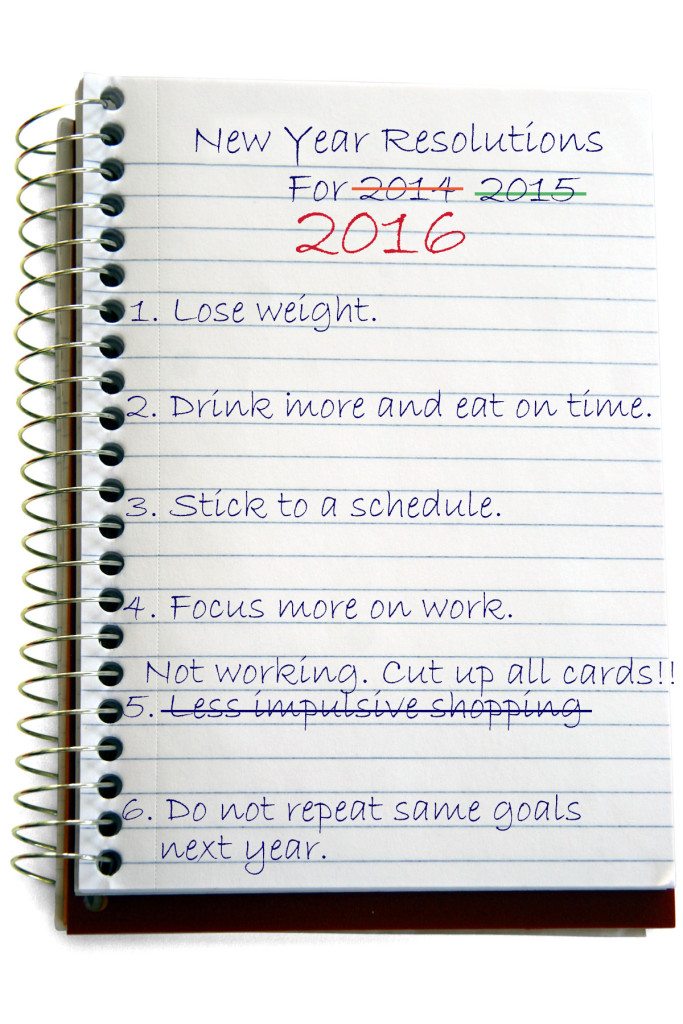 New Year Resolutions
For 2014 2015
2016
1. Lose weight.
2. Drink more and eat on time.
3. Stick to a schedule.
4. Focus more on work.
Not working. Cut up all cards!!
5. Less impulsive shopping
6. Do not repeat same goals
next year.